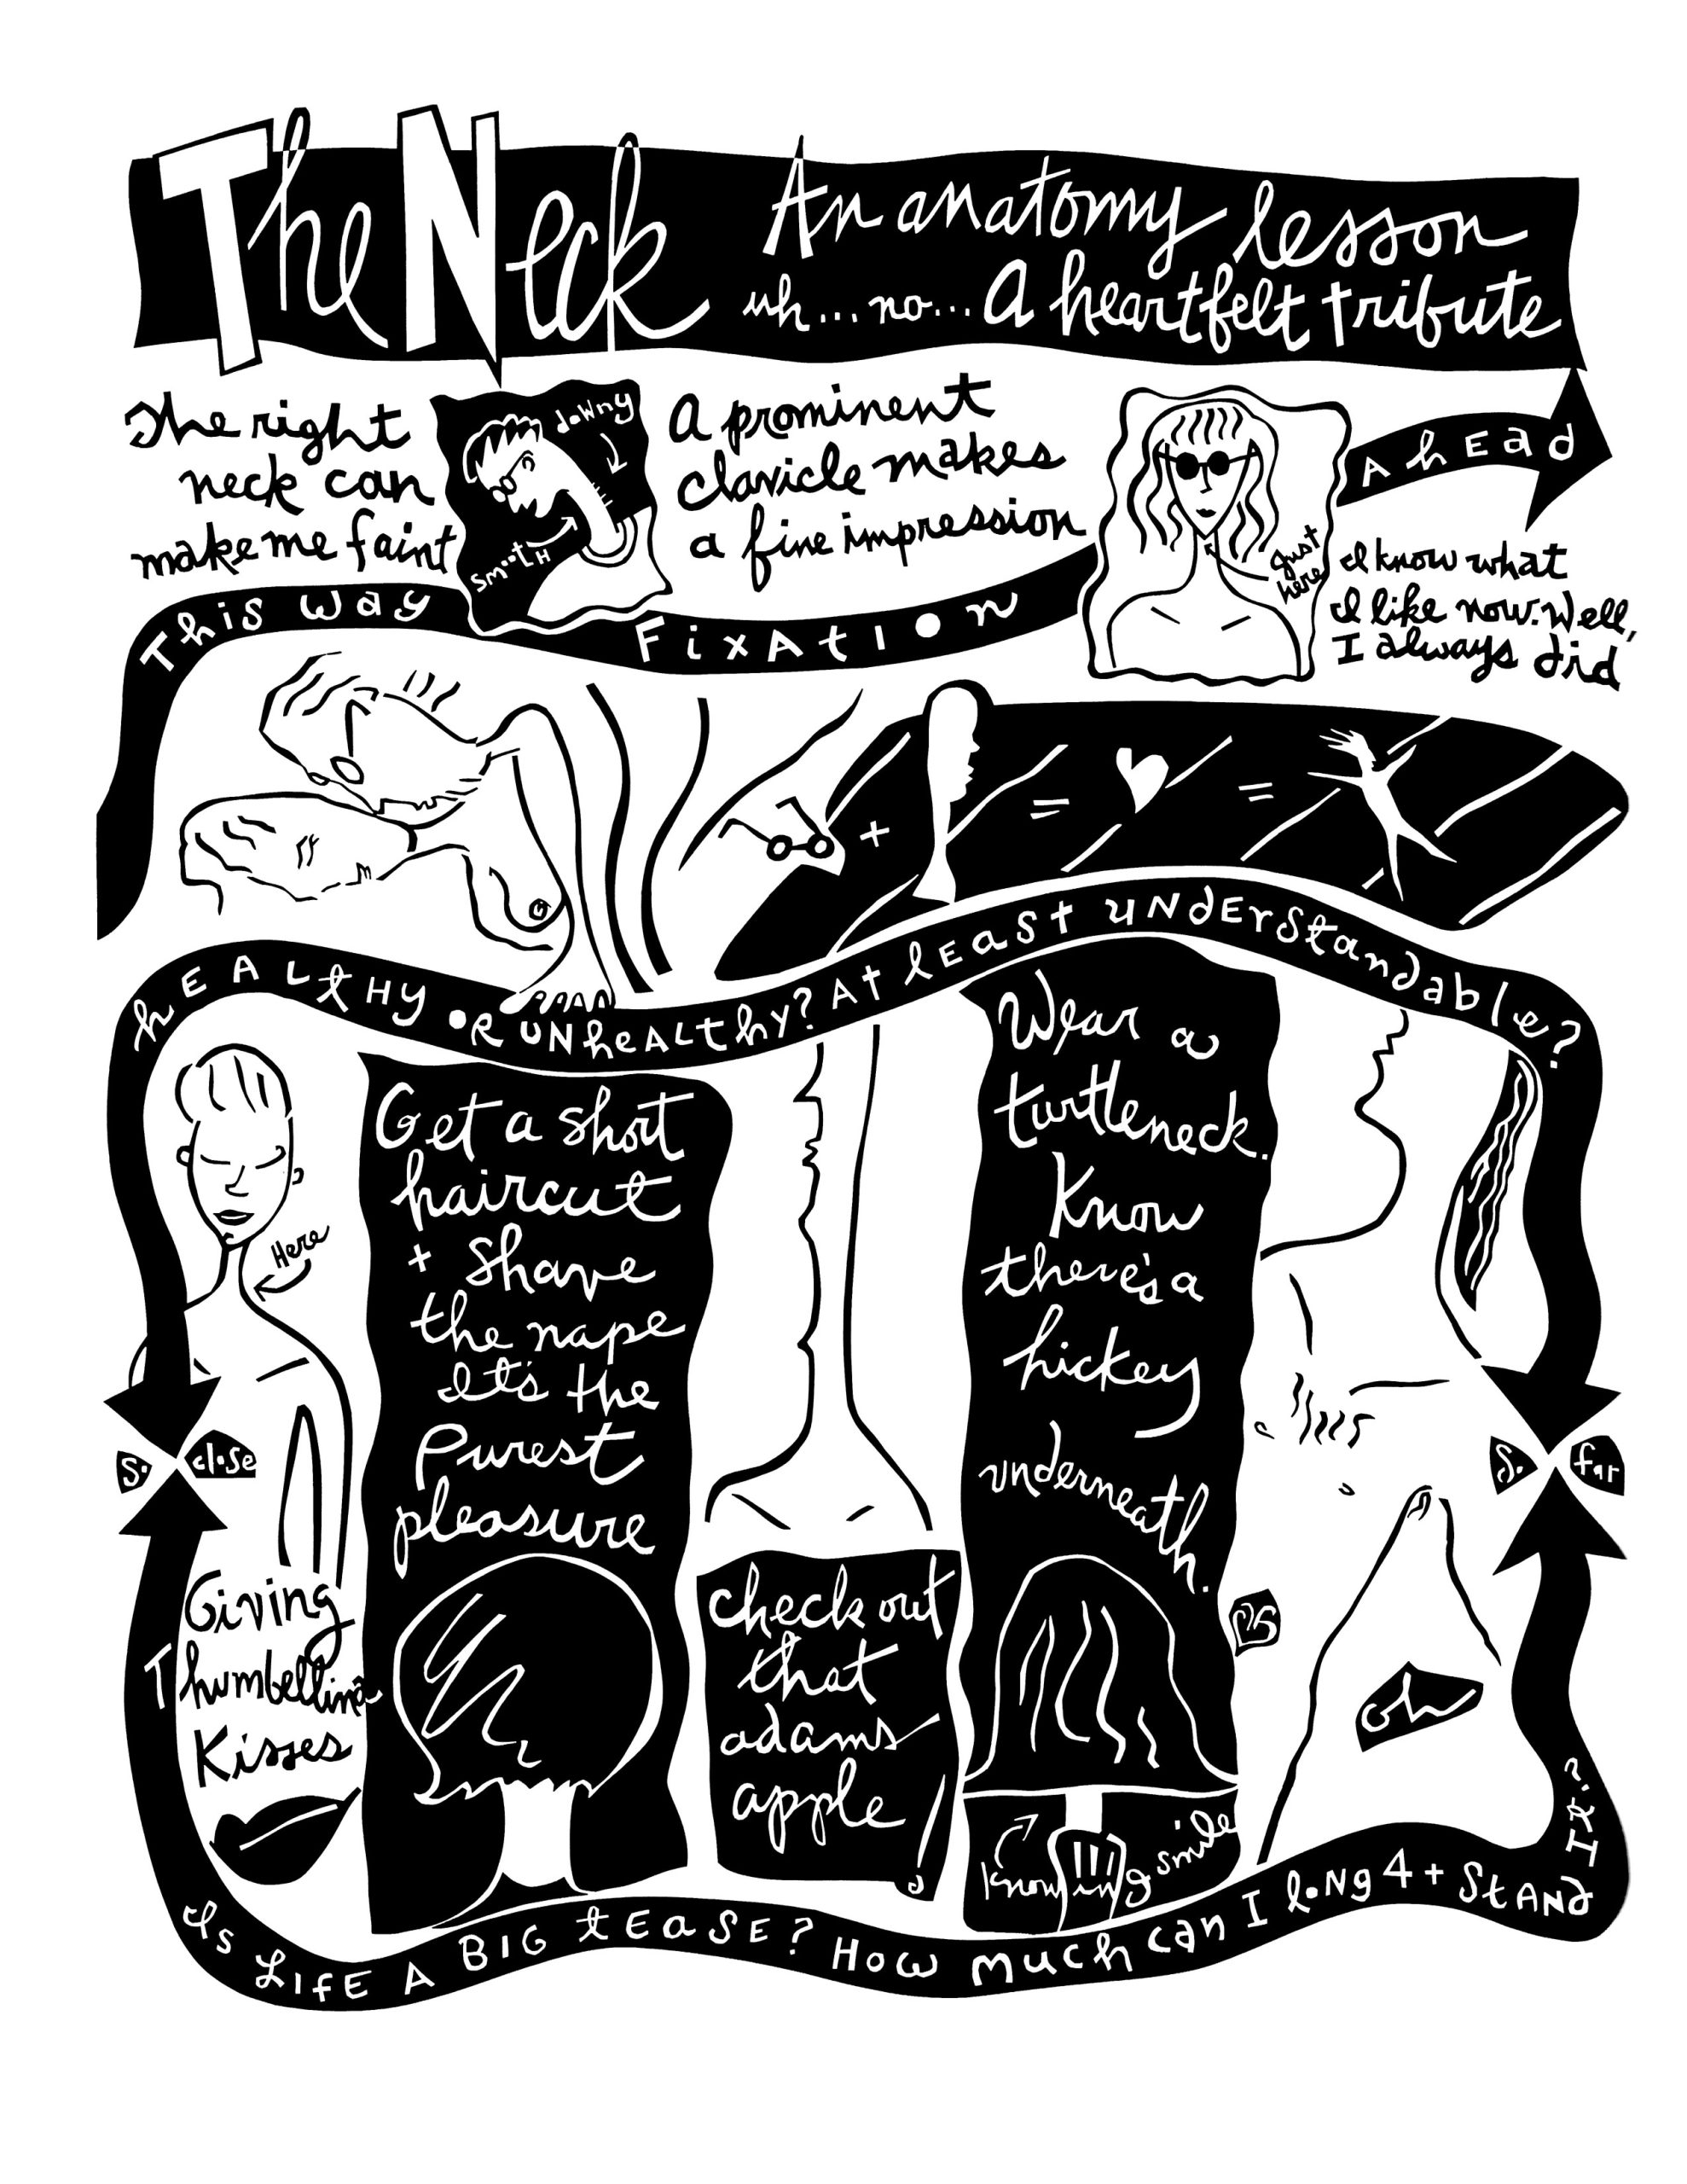 The Neck
An anatomy lesson
uh... no... A heartfelt tribute
The right
neck can
make me faint
downy
smooth
A prominent
clavicle makes
a fine impression
just
here
Ahead
I know what
I like now. Well,
I always did
This way
Fixation
+ = ♥ =
Healthy or unhealthy? At least understandable?
Here
So close
Giving
Thumbellina
Kisses
Get a short
haircut
+ shave
the nape
It's the
Purest
pleasure
check out
that
adams
apple!
Wear a
turtleneck.
Know
there's a
hickey
underneath.
knowing smile
So far
oh
Is life a big tease? How much can I long 4 + stand it?